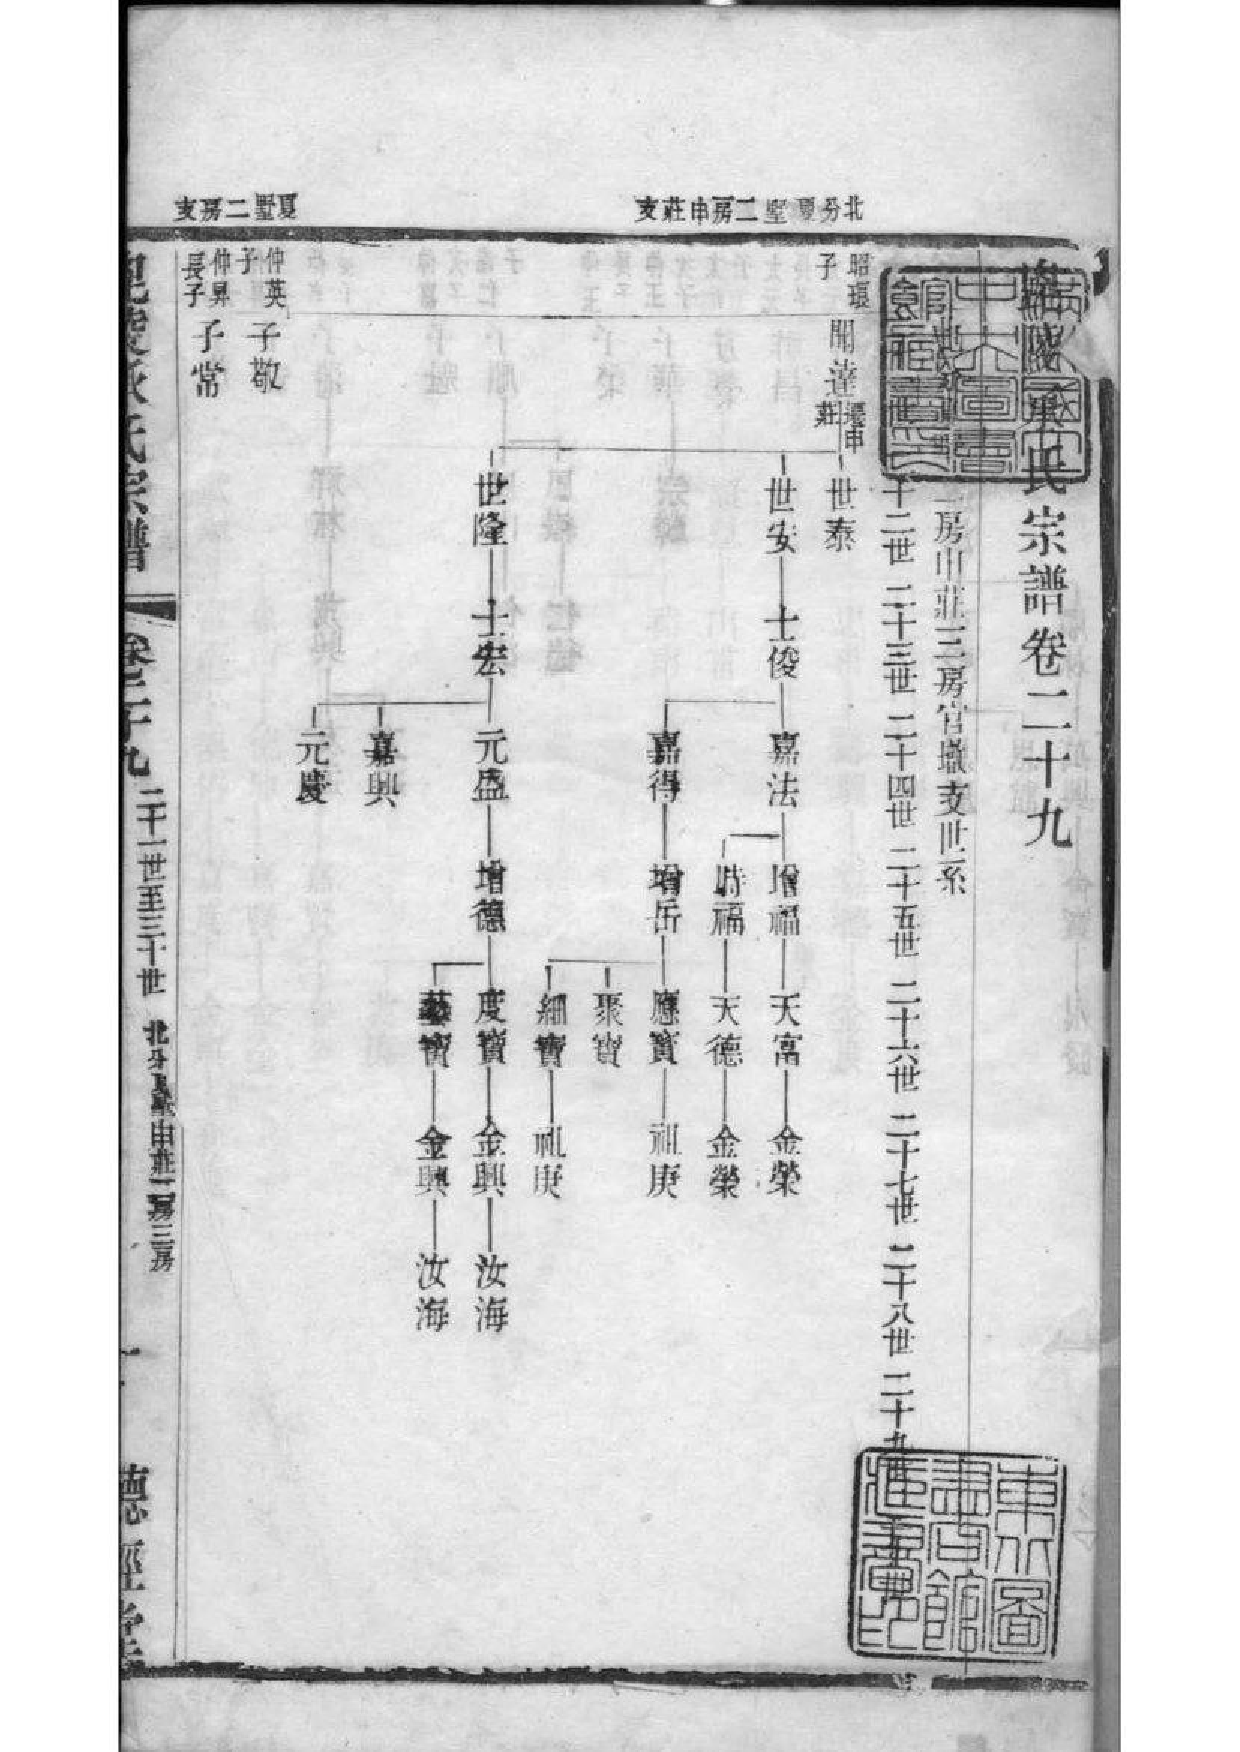 北分夏墅二房申莊支
夏墅二房支
毘陵承氏宗譜卷二十九
二房申莊三房官墩支世系
二十二世 二十三世 二十四世 二十五世 二十六世 二十七世 二十八世 二十九世
昭環子
開達
遷申莊
世泰
世安
士俊
嘉法
增福
天富
金榮
時福
天德
金榮
嘉得
增岳
應寶
祖庚
聚寶
細寶
祖庚
世隆
士宏
元盛
增德
度寶
金興
汝海
藝寶
金興
汝海
嘉興
元慶
仲英子
子敬
仲昇長子
子常
毘陵承氏宗譜
卷二十九
二十一世至三十世
北分夏墅申莊二房三房
一
德經堂